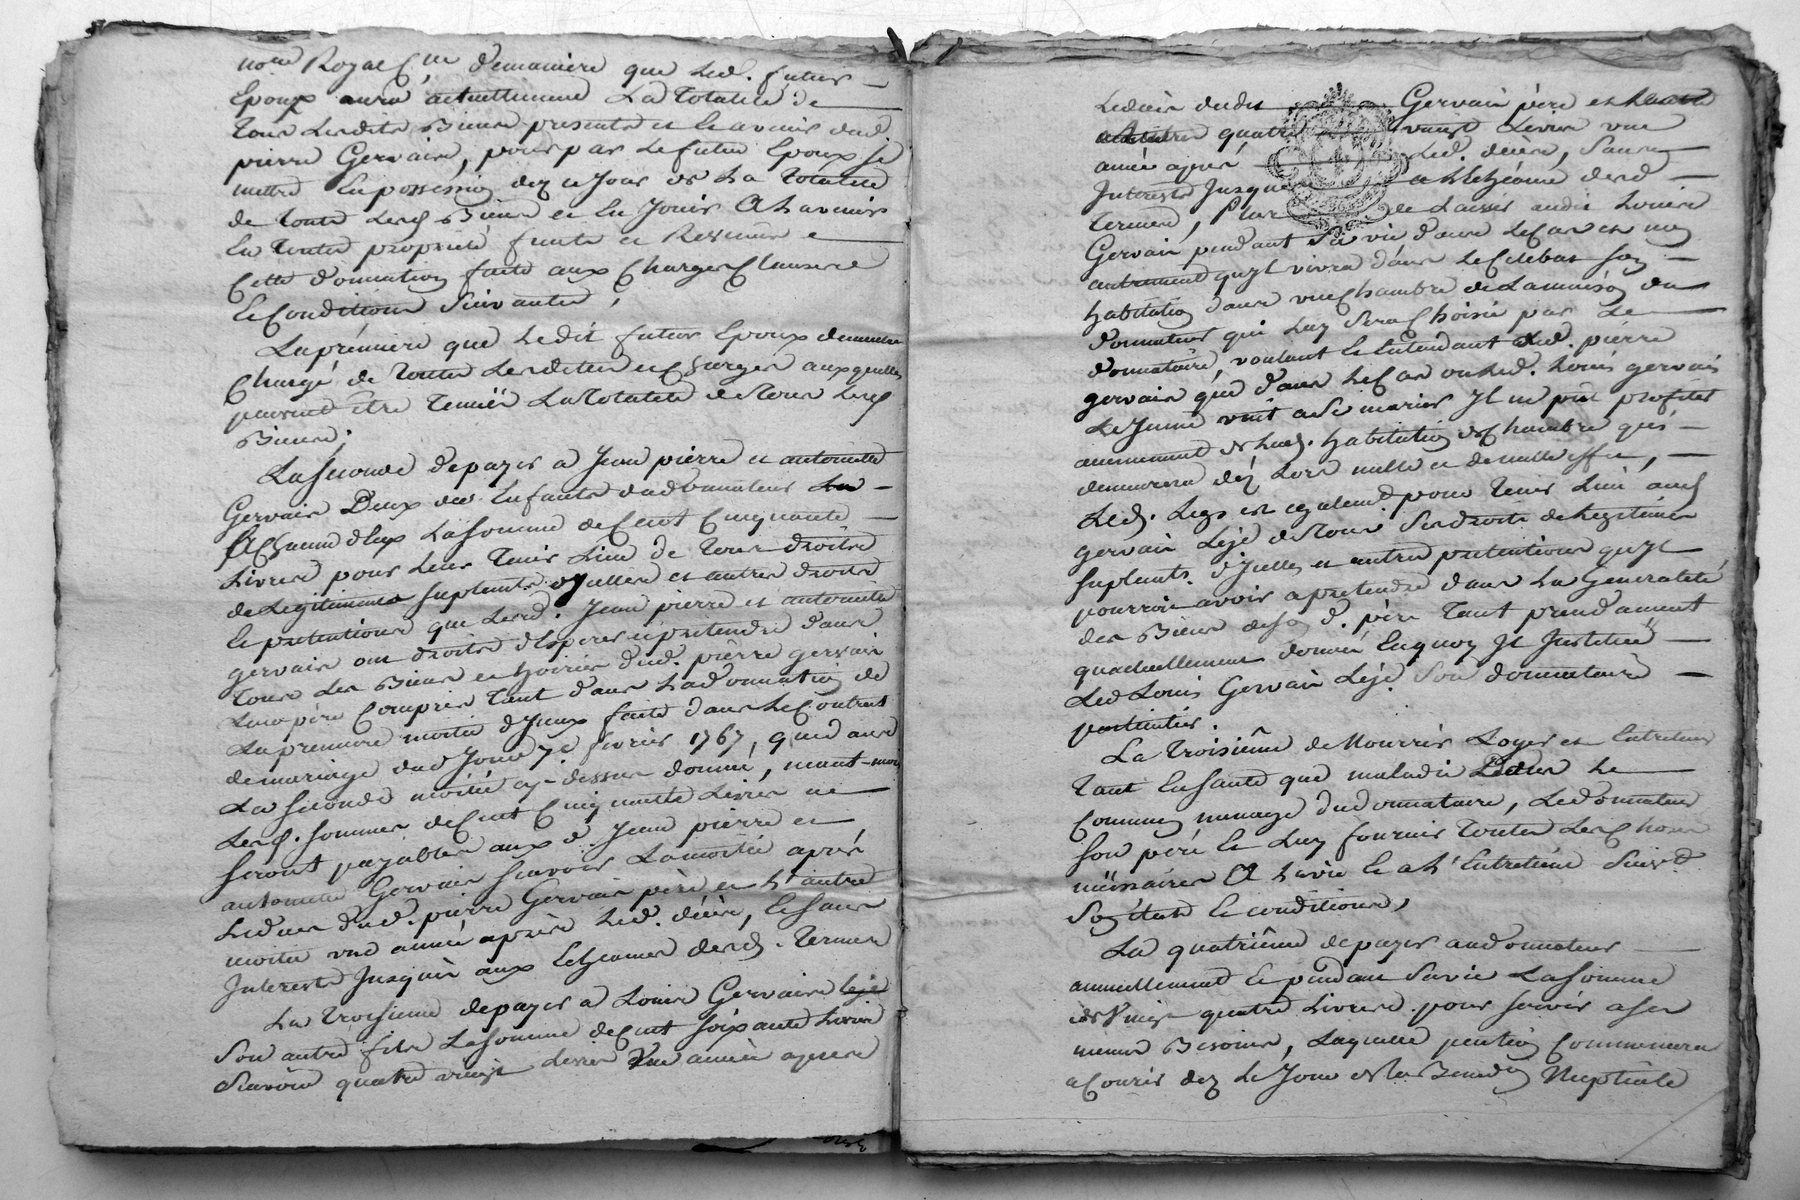 nore Royal demaniere que led. futur
Epoux aura actuellement La Totalité de
Tous Lesdits Biens presents et a avenir dud.
pierre Gervais, pour par Le futur Epoux se
mettre En possession dez ce Jour de La Totalité
de Toute Lesd. Biens et En Jouir A L'avenir
En Toute propriété fruits et Revenus
Cette donnation faite aux Charges Clauses et
Et Conditions Suivantes,
La prémiere que Ledit futur Epoux demeurera
Chargé de Toutes Les dettes et Charges auxquelles
peuvent Etre Tenües La Totalité de Tous Lesd.
Biens;
La Seconde de payer a Jean pierre et antoinette
Gervais Deux des Enfants dud donnateur
A Chacun d'Eux La Somme de Cent Cinquante
Livres pour Leur Tenir Lieu de Tous droits
de Legitimes suplemt. d'ycelles et autres droits
Et pretentions que Lesd. Jean pierre et antoinette
gervais ont droits d'Esperer et pretendre dans
Tous Les Biens et hoirie dud. pierre gervais
Leur pere Compris Tant dans La donnation de
La premiere moitié d'Yceux faite dans Le Contrat
de mariage dud Jour 7e fevrier 1767, que dans
La Seconde moitié cy-dessus donnée,
Lesd. Sommes de Cent Cinquante Livres
Seront payables aux d. Jean pierre et
antoinette Gervais Scavoir La moitié après
Le deces dud. pierre Gervais père et L'autre
moitié une année après Led. décès, Et Sans
Interests Jusques aux Echeances desd. Termes
La Troisieme de payer a Louis Gervais Léjé
Son autre fils La Somme de Cent Soixante Livres
Scavoir quatre vingt Livres Une année apres
Le deces dudit Gervais père et
quatre vingt Livres une
année après Led. décès, Sans
Interests Jusques a L'Echéance desd.
Termes, Plus de Laisser audit Louis
Gervais pendant Sa vie dans Le Cas et non
autrement qu'yl vivra dans Le Celebat Son
habitation dans une Chambre de La maison du
donnateur qui Luy Sera Choisie par Le
donnataire, voulant Et Entendant Led. pierre
gervais que dans Le Cas ou Led. Louis gervais
Le Jeune vint a Se marier Il ne peut profiter
aucunement de Lad. habitation de Chambre qui
demeurera déz Lors nulle et de nulle effet,
Led. Legs est egalemt. pour Tenir Lieu aud.
gervais Léjé de Tous Ses droits de Legitimes
suplemts. d'Ycelles et autres pretentions qu'yl
pourroit avoir a pretendre dans La Generalité
des Biens de Son d. père Tant precedament
qu'actuellement donnés En quoy Il Institue
Led Louis Gervais Léjé Son donnataire
particulier.
La Troisiême de Nourrir Loger et Entretenir
Tant En Santé que maladie Dans Le
Commun menage du donnataire, Le donnateur
Son père Et Luy fournir Toutes Les Choses
nécéssaires A La vie Et a L'Entretient Suivt.
Son état Et conditions,
La quatriême de payer au donnateur
annuellement Et pendant Sa vie La Somme
de Vingt quatre Livres pour Servir a Ses
menus Besoins, Laquelle pention Commencera
a Courir dez Le Jour de La Bened.on Nuptiale